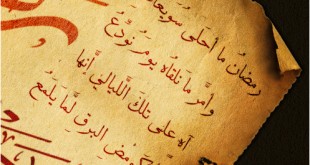 رمضانُ ما أحلى سويعا
وأمرّ ما نلقاه يوم نُودّعُ
آه على تلك الليالي أنها
ومض البرق لمّا يلمع